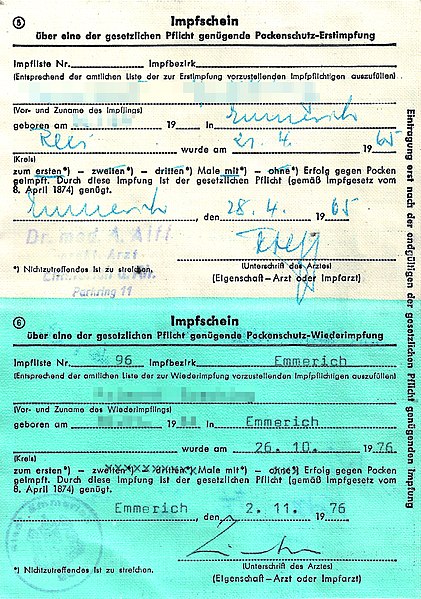 5 Impfschein
über eine der gesetzlichen Pflicht genügende Pockenschutz-Erstimpfung
Impfliste Nr. Impfbezirk
(Entsprechend der amtlichen Liste der zur Erstimpfung vorzustellenden Impfpflichtigen auszufüllen)
(Vor- und Zuname des Impflings)
geboren am 19 in Emmerich
Rees wurde am 21. 4. 1965
(Kreis)
zum ersten*) – zweiten*) – dritten*) Male mit*) – ohne*) Erfolg gegen Pocken
geimpft. Durch diese Impfung ist der gesetzlichen Pflicht (gemäß Impfgesetz vom
8. April 1874) genügt.
Emmerich, den 28. 4. 1965
Dr. med. A.
Arzt
(Unterschrift des Arztes)
*) Nichtzutreffendes ist zu streichen.
(Eigenschaft – Arzt oder Impfarzt)
Parkring 11
Eintragung erst nach der endgültigen der gesetzlichen Pflicht genügenden Impfung
6 Impfschein
über eine der gesetzlichen Pflicht genügende Pockenschutz-Wiederimpfung
Impfliste Nr. 96 Impfbezirk Emmerich
(Entsprechend der amtlichen Liste der zur Wiederimpfung vorzustellenden Impfpflichtigen auszufüllen)
(Vor- und Zuname des Wiederimpflings)
geboren am in Emmerich
wurde am 26. 10. 1976
(Kreis)
zum ersten*) – zweiten*) dritten*) Male mit*) – ohne*) Erfolg gegen Pocken
geimpft. Durch diese Impfung ist der gesetzlichen Pflicht (gemäß Impfgesetz vom
8. April 1874) genügt.
Emmerich, den 2. 11. 1976
(Unterschrift des Arztes)
*) Nichtzutreffendes ist zu streichen.
(Eigenschaft – Arzt oder Impfarzt)